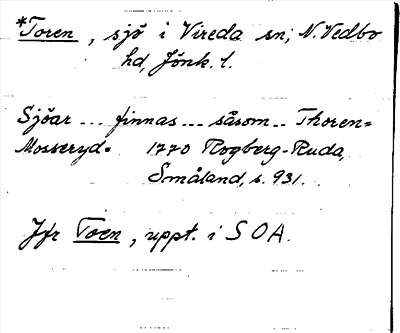 *Toren, sjö i Vireda sn, N. Vedbo
hd, Jönk. l.
Sjöar --- finnas --- såsom -- Thoren=
Mosseryd= 1770 Rogberg-Ruda,
Småland, s. 931.
Jfr Toen, uppt. i SOA.